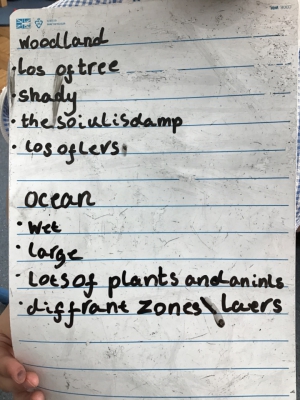 woodland
· Los of tree
· shady
· the soiulis damp
· Los of Lers
ocean
· Wet
· Large
· Lots of plants and aninls
· diffrant zones\ Laers